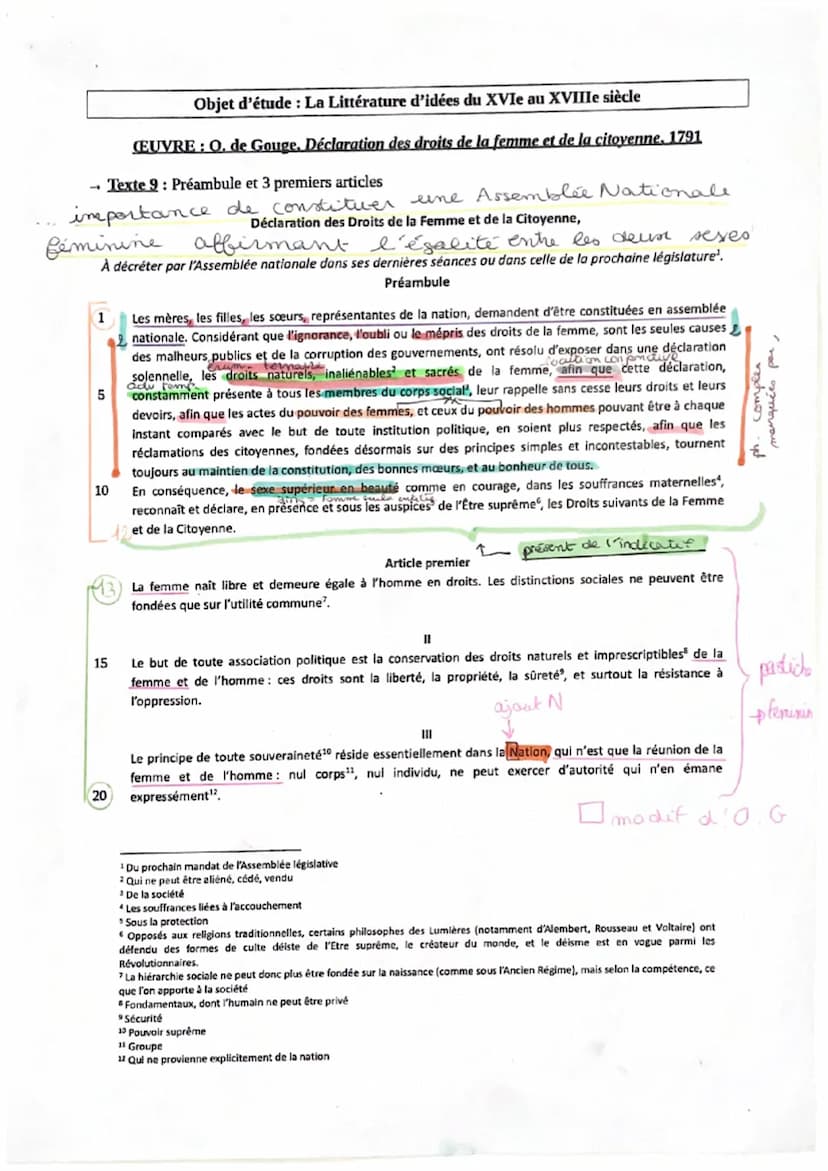 Objet d'étude : La Littérature d'idées du XVIe au XVIIIe siècle
ŒUVRE : O. de Gouge, Déclaration des droits de la femme et de la citoyenne, 1791
→ Texte 9 : Préambule et 3 premiers articles
... importance de constituer une Assemblée Nationale
Déclaration des Droits de la Femme et de la Citoyenne,
féminine affirmant l'égalité entre les deux sexes
À décréter par l'Assemblée nationale dans ses dernières séances ou dans celle de la prochaine législature¹.
Préambule
1 Les mères, les filles, les sœurs, représentantes de la nation, demandent d'être constituées en assemblée
nationale. Considérant que l'ignorance, l'oubli ou le mépris des droits de la femme, sont les seules causes
des malheurs publics et de la corruption des gouvernements, ont résolu d'exposer dans une déclaration
énum. ternaire
solennelle, les droits naturels, inaliénables² et sacrés de la femme, afin que cette déclaration,
adv temp.
5 constamment présente à tous les membres du corps social³, leur rappelle sans cesse leurs droits et leurs
devoirs, afin que les actes du pouvoir des femmes, et ceux du pouvoir des hommes pouvant être à chaque
instant comparés avec le but de toute institution politique, en soient plus respectés, afin que les
réclamations des citoyennes, fondées désormais sur des principes simples et incontestables, tournent
toujours au maintien de la constitution, des bonnes mœurs, et au bonheur de tous.
ph. complexe
marquées par,
10 En conséquence, le sexe supérieur en beauté comme en courage, dans les souffrances maternelles⁴,
reconnaît et déclare, en présence et sous les auspices⁵ de l'Être suprême⁶, les Droits suivants de la Femme
12 et de la Citoyenne.
présent de l'indicatif
Article premier
13 La femme naît libre et demeure égale à l'homme en droits. Les distinctions sociales ne peuvent être
fondées que sur l'utilité commune⁷.
II
15 Le but de toute association politique est la conservation des droits naturels et imprescriptibles⁸ de la
femme et de l'homme : ces droits sont la liberté, la propriété, la sûreté⁹, et surtout la résistance à
l'oppression.
pastiche
+ féminin
ajout N
III
Le principe de toute souveraineté¹⁰ réside essentiellement dans la Nation, qui n'est que la réunion de la
femme et de l'homme : nul corps¹¹, nul individu, ne peut exercer d'autorité qui n'en émane
20 expressément¹².
modif d'O. G
¹ Du prochain mandat de l'Assemblée législative
² Qui ne peut être aliéné, cédé, vendu
³ De la société
⁴ Les souffrances liées à l'accouchement
⁵ Sous la protection
⁶ Opposés aux religions traditionnelles, certains philosophes des Lumières (notamment d'Alembert, Rousseau et Voltaire) ont
défendu des formes de culte déiste de l'Etre suprême, le créateur du monde, et le déisme est en vogue parmi les
Révolutionnaires.
⁷ La hiérarchie sociale ne peut donc plus être fondée sur la naissance (comme sous l'Ancien Régime), mais selon la compétence, ce
que l'on apporte à la société
⁸ Fondamentaux, dont l'humain ne peut être privé
⁹ Sécurité
¹⁰ Pouvoir suprême
¹¹ Groupe
¹² Qui ne provienne explicitement de la nation